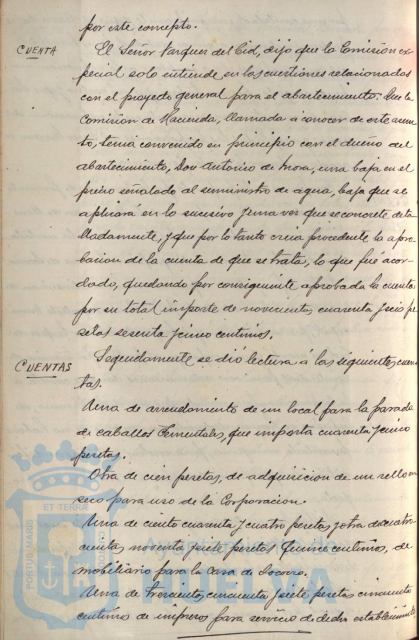 por este concepto.
CUENTA
El Señor Vazquez del Cid, dijo que la Comisión es-
pecial solo intiende en las cuestiones relacionadas
con el proyecto general para el abastecimiento: Que la
Comisión de Hacienda, llamada á conocer de este asun-
to, tenia convenido en principio con el dueño del
abastecimiento, Don Antonio de Mora, una baja en el
precio señalado al suministro de agua, baja que se
aplicará en lo sucesivo, y una vez que se concrete deta-
lladamente, y que por lo tanto creia procedente la apro-
bacion de la cuenta de que se trata, lo que fué acor-
dado, quedando por consiguiente aprobada la cuenta
por su total importe de novecientas cuarenta y seis pe-
setas sesenta y cinco centimos.
CUENTAS
Seguidamente se dió lectura á las siguientes cuen-
tas.
Una de arrendamiento de un local para la parada
de caballos Sementales, que importa cuarenta y cinco
pesetas.
Otra de cien pesetas, de adquisicion de un sello en
seco para uso de la Corporacion.
Una de ciento cuarenta y cuatro pesetas y otra de cuatro-
cientas noventa y siete pesetas quince centimos, de
mobiliario para la Casa de Socorro.
Una de trescientas cincuenta y siete pesetas cincuenta
centimos de impresos para servicio de dicho establecimiento
PORTUS MARIS
ET TERRAE
HUELVA